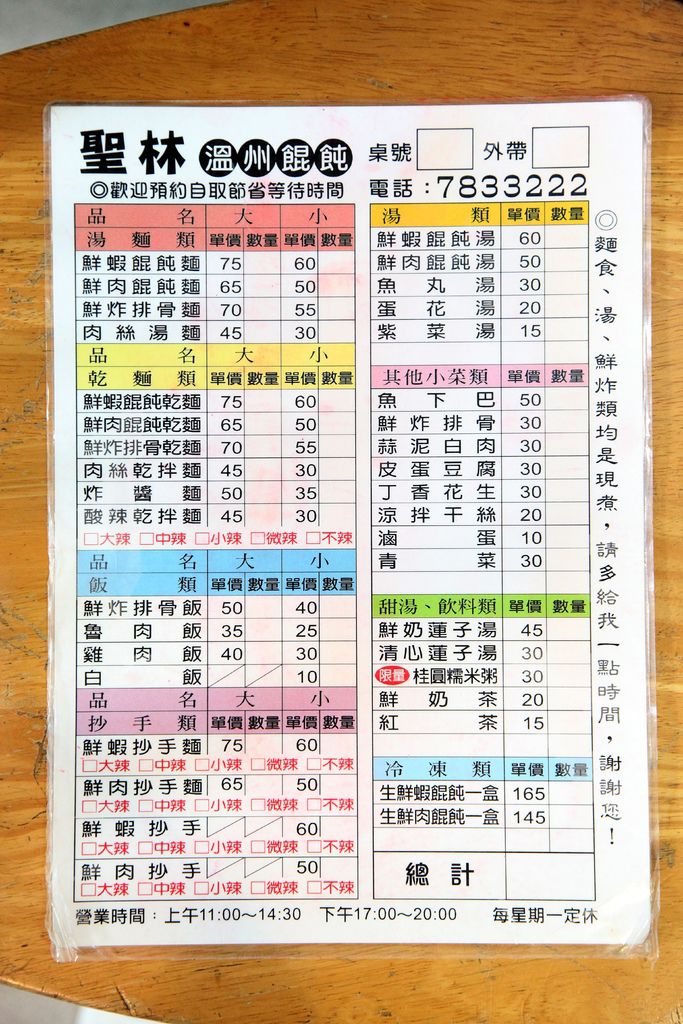 聖林 溫州餛飩
桌號 外帶
◎歡迎預約自取節省等待時間
電話：7833222
品名 大 小
湯麵類 單價 數量 單價 數量
鮮蝦餛飩麵 75 60
鮮肉餛飩麵 65 50
鮮炸排骨麵 70 55
肉絲湯麵 45 30
品名 大 小
乾麵類 單價 數量 單價 數量
鮮蝦餛飩乾麵 75 60
鮮肉餛飩乾麵 65 50
鮮炸排骨乾麵 70 55
肉絲乾拌麵 45 30
炸醬麵 50 35
酸辣乾拌麵 45 30
□大辣 □中辣 □小辣 □微辣 □不辣
品名 大 小
飯類 單價 數量 單價 數量
鮮炸排骨飯 50 40
魯肉飯 35 25
雞肉飯 40 30
白飯 10
品名 大 小
抄手類 單價 數量 單價 數量
鮮蝦抄手麵 75 60
□大辣 □中辣 □小辣 □微辣 □不辣
鮮肉抄手麵 65 50
□大辣 □中辣 □小辣 □微辣 □不辣
鮮蝦抄手 60
□大辣 □中辣 □小辣 □微辣 □不辣
鮮肉抄手 50
□大辣 □中辣 □小辣 □微辣 □不辣
湯類 單價 數量
鮮蝦餛飩湯 60
鮮肉餛飩湯 50
魚丸湯 30
蛋花湯 20
紫菜湯 15
其他小菜類 單價 數量
魚下巴 50
鮮炸排骨 30
蒜泥白肉 30
皮蛋豆腐 30
丁香花生 30
涼拌干絲 20
滷蛋 10
青菜 30
甜湯、飲料類 單價 數量
鮮奶蓮子湯 45
清心蓮子湯 30
限量 桂圓糯米粥 30
鮮奶茶 20
紅茶 15
冷凍類 單價 數量
生鮮蝦餛飩一盒 165
生鮮肉餛飩一盒 145
總計
◎麵食、湯、鮮炸類均是現煮，請多給我一點時間，謝謝您！
營業時間：上午11:00～14:30 下午17:00～20:00 每星期一定休